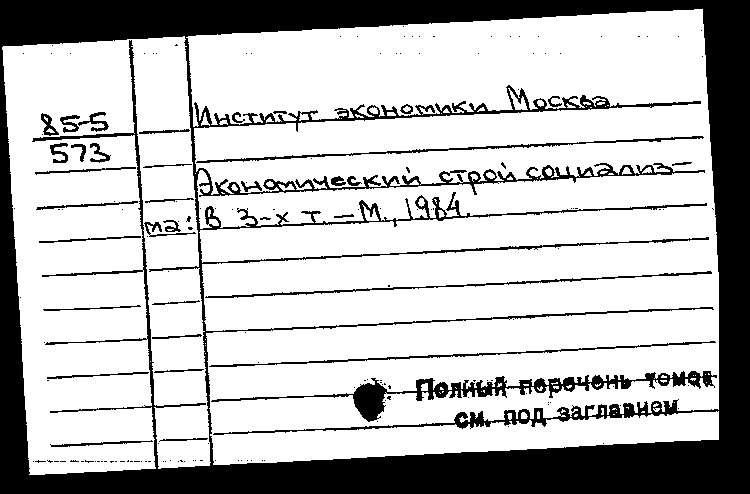 85-5
573
Институт экономики. Москва.
Экономический строй социализ-
ма: В 3-х т. – М., 1984.
Полный перечень томов
см. под заглавием